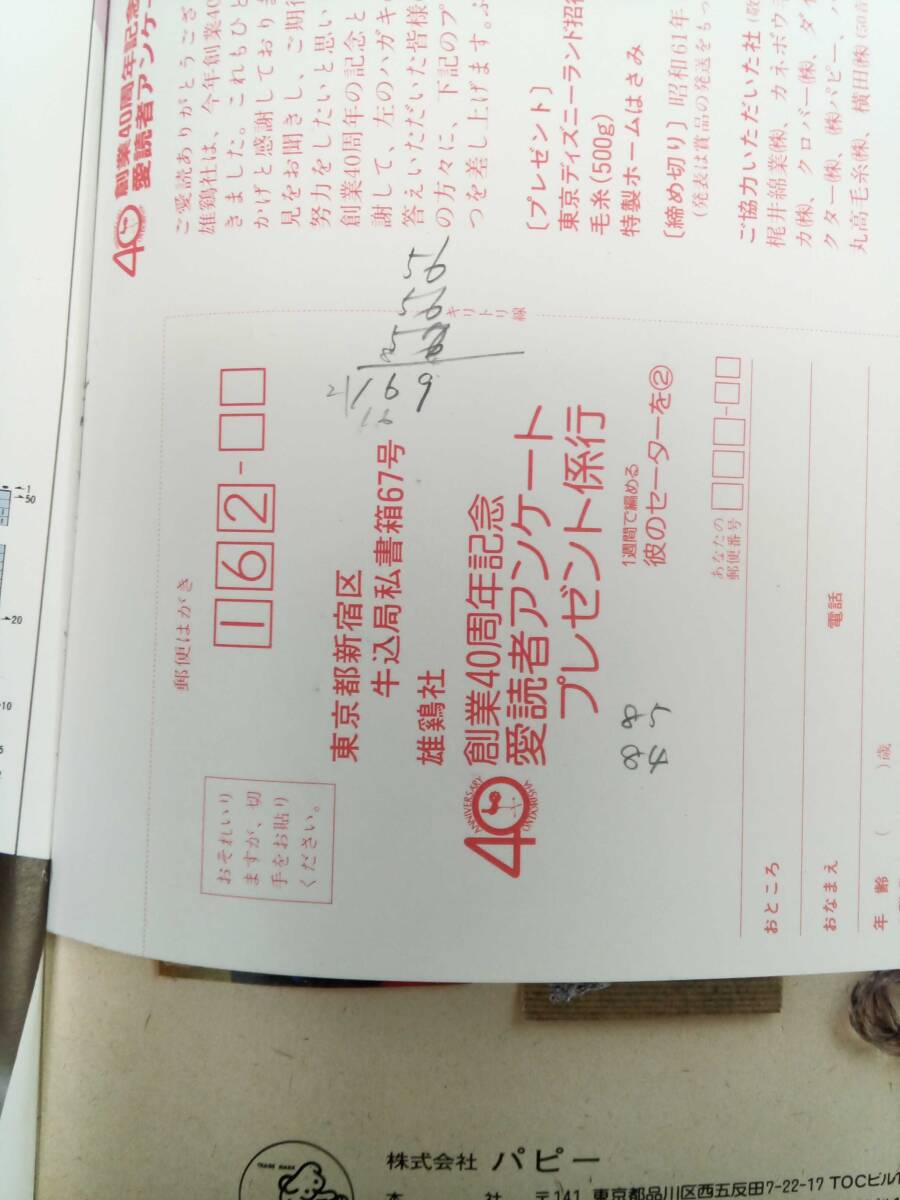 創業40周年記念
愛読者アンケ
ご愛読ありがとうござ
雄鶏社は、今年創業40
きました。これもひと
かげと感謝しておりま
見をお聞きし、ご期待
努力をしたいと思い
創業40周年の記念と
謝して、左のハガキ
答えいただいた皆様
の方々に、下記のプ
つを差し上げます。ふ
〔プレゼント〕
東京ディズニーランド招待
毛糸(500g)
特製ホームはさみ
〔締め切り〕昭和61年
(発表は賞品の発送をもっ
ご協力いただいた社(敬
梶井綿業㈱、カネボウ
カ㈱、クロバー㈱、ダイ
クター㈱、㈱パピー、
丸高毛糸㈱、横田㈱(50音
キリトリ線
郵便はがき
162-
東京都新宿区
牛込局私書箱67号
雄鶏社
40
ANNIVERSARY
ONDORISHA
創業40周年記念
愛読者アンケート
プレゼント係行
1週間で編める
彼のセーターを②
おそれいり
ますが、切
手をお貼り
ください。
169
あなたの
郵便番号
おところ
おなまえ
電話
年齢( )歳
1
50
20
10
TRADE MARK
株式会社 パピー
本 社 〒141 東京都品川区西五反田7-22-17 TOCビル